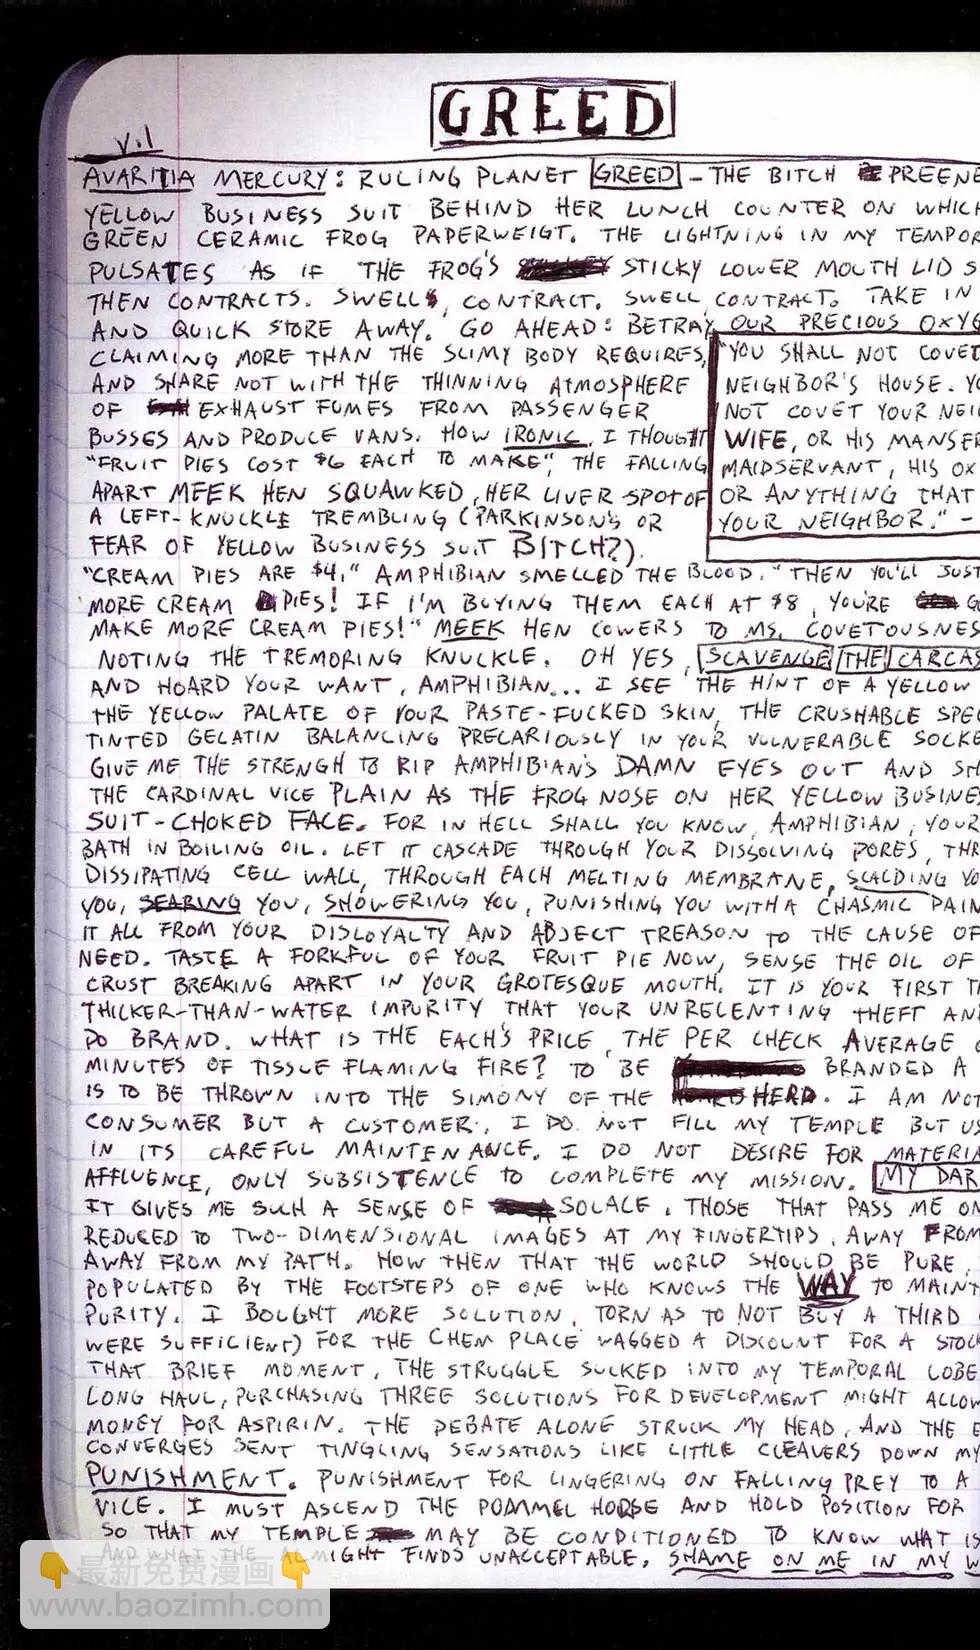 GREED
V.1
AVARITIA MERCURY: RULING PLANET GREED - THE BITCH PREENE
YELLOW BUSINESS SUIT BEHIND HER LUNCH COUNTER ON WHICH
GREEN CERAMIC FROG PAPERWEIGT. THE LIGHTNING IN MY TEMPOR
PULSATES AS IF THE FROG'S STICKY LOWER MOUTH LID S
THEN CONTRACTS. SWELL, CONTRACT. SWELL CONTRACT. TAKE IN
AND QUICK STORE AWAY. GO AHEAD: BETRAY OUR PRECIOUS OXYG
CLAIMING MORE THAN THE SLIMY BODY REQUIRES,
AND SHARE NOT WITH THE THINNING ATMOSPHERE
OF EXHAUST FUMES FROM PASSENGER
BUSSES AND PRODUCE VANS. HOW IRONIC, I THOUGHT
"FRUIT PIES COST $6 EACH TO MAKE", THE FALLING
APART MEEK HEN SQUAWKED, HER LIVER SPOT OF
A LEFT-KNUCKLE TREMBLING (PARKINSON'S OR
FEAR OF YELLOW BUSINESS SUIT BITCH?).
"YOU SHALL NOT COVET
NEIGHBOR'S HOUSE. YO
NOT COVET YOUR NEIG
WIFE, OR HIS MANSER
MAIDSERVANT, HIS OX
OR ANYTHING THAT
YOUR NEIGHBOR." -
"CREAM PIES ARE $4," AMPHIBIAN SMELLED THE BLOOD. "THEN YOU'LL JUST
MORE CREAM PIES! IF I'M BUYING THEM EACH AT $8, YOU'RE G
MAKE MORE CREAM PIES!" MEEK HEN COWERS TO MS. COVETOUSNES
NOTING THE TREMORING KNUCKLE. OH YES, SCAVENGE THE CARCAS
AND HOARD YOUR WANT, AMPHIBIAN... I SEE THE HINT OF A YELLOW
THE YELLOW PALATE OF YOUR PASTE-FUCKED SKIN, THE CRUSHABLE SPEC
TINTED GELATIN BALANCING PRECARIOUSLY IN YOUR VULNERABLE SOCKE
GIVE ME THE STRENGH TO RIP AMPHIBIAN'S DAMN EYES OUT AND SH
THE CARDINAL VICE PLAIN AS THE FROG NOSE ON HER YELLOW BUSINE
SUIT-CHOKED FACE. FOR IN HELL SHALL YOU KNOW, AMPHIBIAN, YOUR
BATH IN BOILING OIL. LET IT CASCADE THROUGH YOUR DISSOLVING PORES, THR
DISSIPATING CELL WALL, THROUGH EACH MELTING MEMBRANE, SCALDING YO
YOU, SEARING YOU, SHOWERING YOU, PUNISHING YOU WITH A CHASMIC PAIN
IT ALL FROM YOUR DISLOYALTY AND ABJECT TREASON TO THE CAUSE OF
NEED. TASTE A FORKFUL OF YOUR FRUIT PIE NOW, SENSE THE OIL OF
CRUST BREAKING APART IN YOUR GROTESQUE MOUTH. IT IS YOUR FIRST T
THICKER-THAN-WATER IMPURITY THAT YOUR UNRELENTING THEFT AN
DO BRAND. WHAT IS THE EACH'S PRICE, THE PER CHECK AVERAGE
MINUTES OF TISSUE FLAMING FIRE? TO BE BRANDED A
IS TO BE THROWN INTO THE SIMONY OF THE HERD. I AM NOT
CONSUMER BUT A CUSTOMER. I DO NOT FILL MY TEMPLE BUT US
IN ITS CAREFUL MAINTENANCE. I DO NOT DESIRE FOR MATERIA
AFFLUENCE, ONLY SUBSISTENCE TO COMPLETE MY MISSION. MY DAR
IT GIVES ME SUCH A SENSE OF SOLACE. THOSE THAT PASS ME ON
REDUCED TO TWO-DIMENSIONAL IMAGES AT MY FINGERTIPS, AWAY FROM
AWAY FROM MY PATH. HOW THEN THAT THE WORLD SHOULD BE PURE,
POPULATED BY THE FOOTSTEPS OF ONE WHO KNOWS THE WAY TO MAINT
PURITY. I BOUGHT MORE SOLUTION, TORN AS TO NOT BUY A THIRD
WERE SUFFICIENT) FOR THE CHEM PLACE WAGGED A DISCOUNT FOR A STOC
THAT BRIEF MOMENT, THE STRUGGLE SUCKED INTO MY TEMPORAL LOBE
LONG HAUL, PURCHASING THREE SOLUTIONS FOR DEVELOPMENT MIGHT ALLOW
MONEY FOR ASPIRIN. THE DEBATE ALONE STRUCK MY HEAD, AND THE E
CONVERGES SENT TINGLING SENSATIONS LIKE LITTLE CLEAVERS DOWN MY
PUNISHMENT. PUNISHMENT FOR LINGERING ON FALLING PREY TO A
VICE. I MUST ASCEND THE POMMEL HORSE AND HOLD POSITION FOR
SO THAT MY TEMPLE MAY BE CONDITIONED TO KNOW WHAT IS
AND WHAT THE ALMIGHT FINDS UNACCEPTABLE. SHAME ON ME IN MY W
最新免费漫画
www.baozimh.com